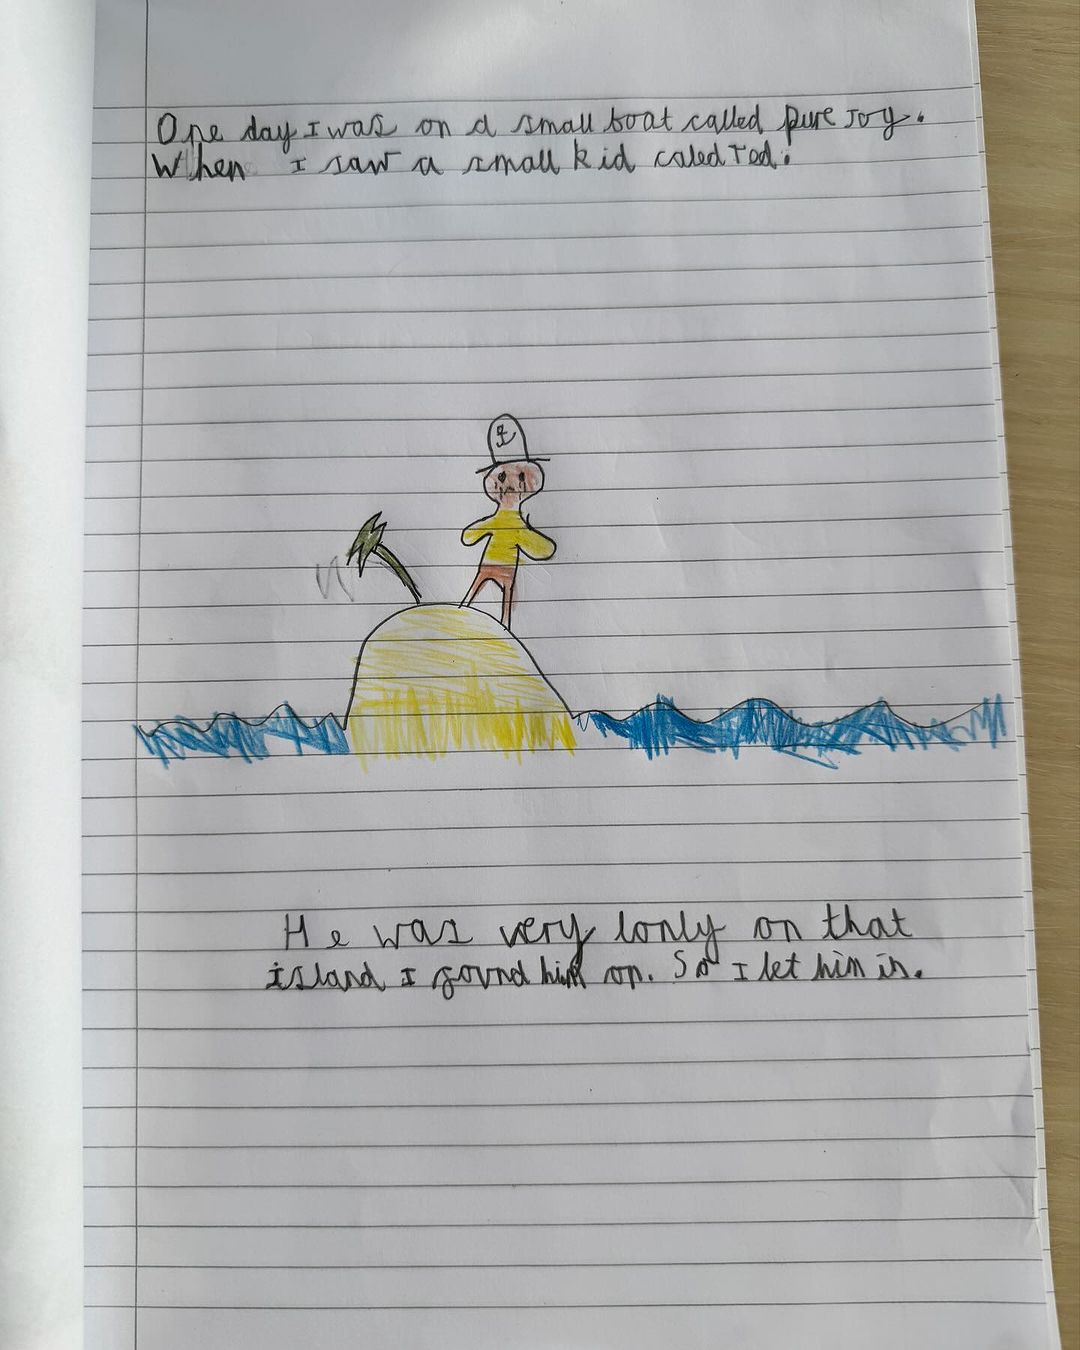 One day I was on a small boat called pure Joy.
When I saw a small kid caled Ted.
He was very lonly on that
island I found him on. So I let him in.